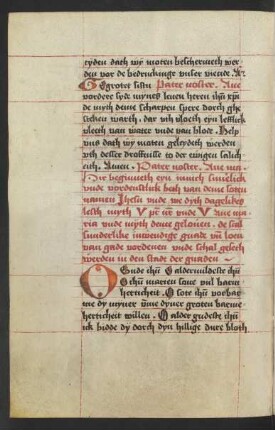 tyden dath wy moten beschermeth wer
den vor de bedruckinge unser viende. A
Gegrotet sistu Pater noster. Aue
vordere syde mynes leuen heren ihu xpi
de myth deme scharpen spere dorch ghe
steken warth. dar uth vloeth eyn lefflick
vleeth van water unde van blode. Help
uns dath wy moten geleydeth werden
uth desser droffnisse to der ewigen salich
eith. Amen. Pater noster. Aue ma.
Hir begynneth eyn minlick
unde vordenstlick bath van deme soten
namen Ihesu unde we dyth dagelikes
lesth myth V pr nr unde V Aue ma
ria unde myth deme gelouen. de sal
sunderlike inwendige gnade unde loen
van gade vordenen unde schal geseth
werden in den stade der gnaden
O Gude ihu O aldermildeste ihu
O ihu marien sone vul barm
herticheit. O sote ihu vorbar
me dy myner dyner groten barm
herticheit willen. O alder gudeste ihu
ick bidde dy dorch dyn hillige dure bloth